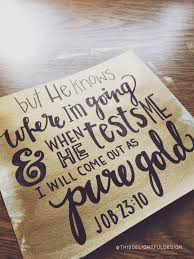 but He knows
where I'm going
& WHEN
HE tests ME
I WILL COME OUT AS
pure gold
JOB 23:10
@THISDELIGHTFULDESIGN